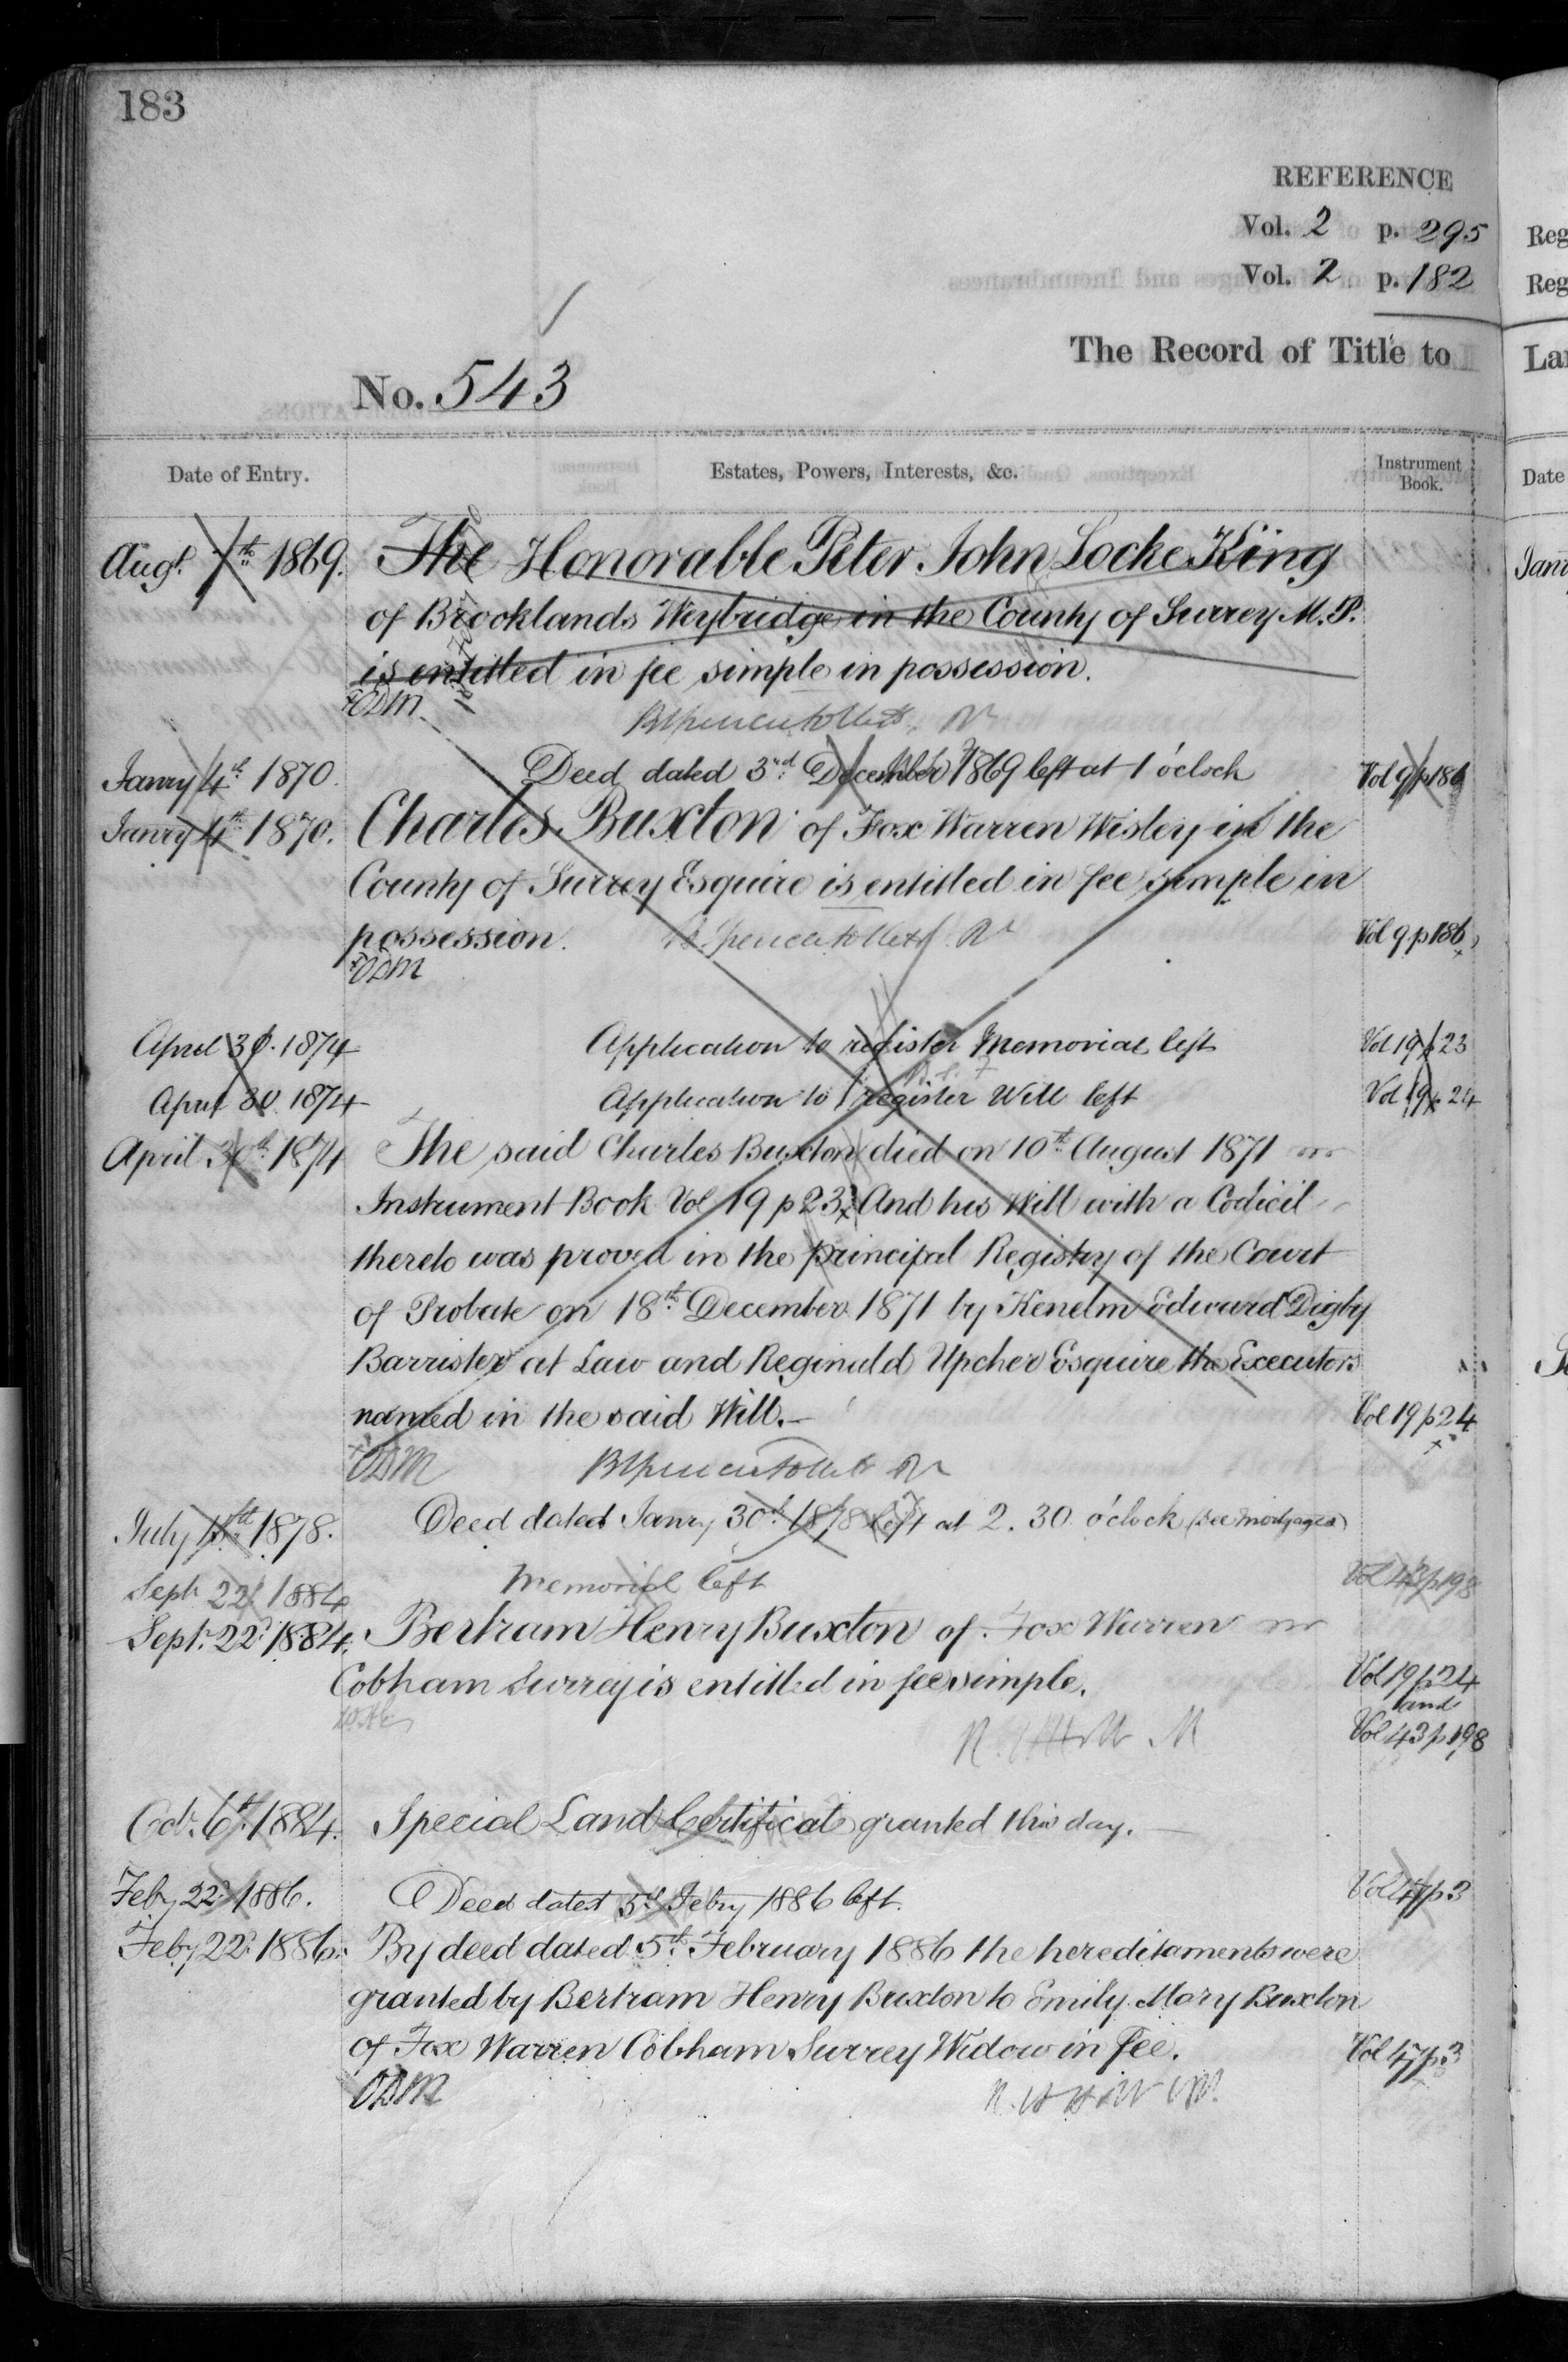 183
REFERENCE
Vol. 2 p. 295
Vol. 2 p. 182
The Record of Title to
No. 543
Date of Entry. Estates, Powers, Interests, &c. Instrument Book.
Augt. 7th 1869. The Honorable Peter John Locke King
of Brooklands Weybridge in the County of Surrey M.P.
is entitled in fee simple in possession.
ODM
Janry 4th 1870. Deed dated 3rd December 1869 left at 1 o'clock Vol 9 p 186
Janry 4th 1870. Charles Buxton of Fox Warren Wisley in the
County of Surrey Esquire is entitled in fee simple in
possession. Vol 9 p 186
ODM
April 30. 1874 Application to register Memorial left Vol 19 p 23
April 30 1874 Application to register Will left Vol 19 p 24
April 30th 1874 The said Charles Buxton died on 10th August 1871
Instrument Book Vol 19 p 23. And his Will with a Codicil
thereto was proved in the principal Registry of the Court
of Probate on 18th December 1871 by Kenelm Edward Digby
Barrister at Law and Reginald Upcher Esquire the Executors
named in the said Will. Vol 19 p 24
ODM
July 15th 1878. Deed dated Janry 30th 1878 left at 2.30 o'clock (see Mortgages)
Sept 22d 1884 Memorial left Vol 43 p 198
Septr. 22d 1884. Bertram Henry Buxton of Fox Warren
Cobham Surrey is entitled in fee simple. Vol 19 p 24
and
Vol 43 p 198
Octr. 6th 1884. Special Land Certificate granted this day.
Feby 22d 1886. Deed dated 5th Febry 1886 left. Vol 47 p 3
Feby 22d 1886. By deed dated 5th February 1886 the hereditaments were
granted by Bertram Henry Buxton to Emily Mary Buxton
of Fox Warren Cobham Surrey Widow in fee. Vol 47 p. 3
ODM
Reg
Reg
Lan
Date
Janu